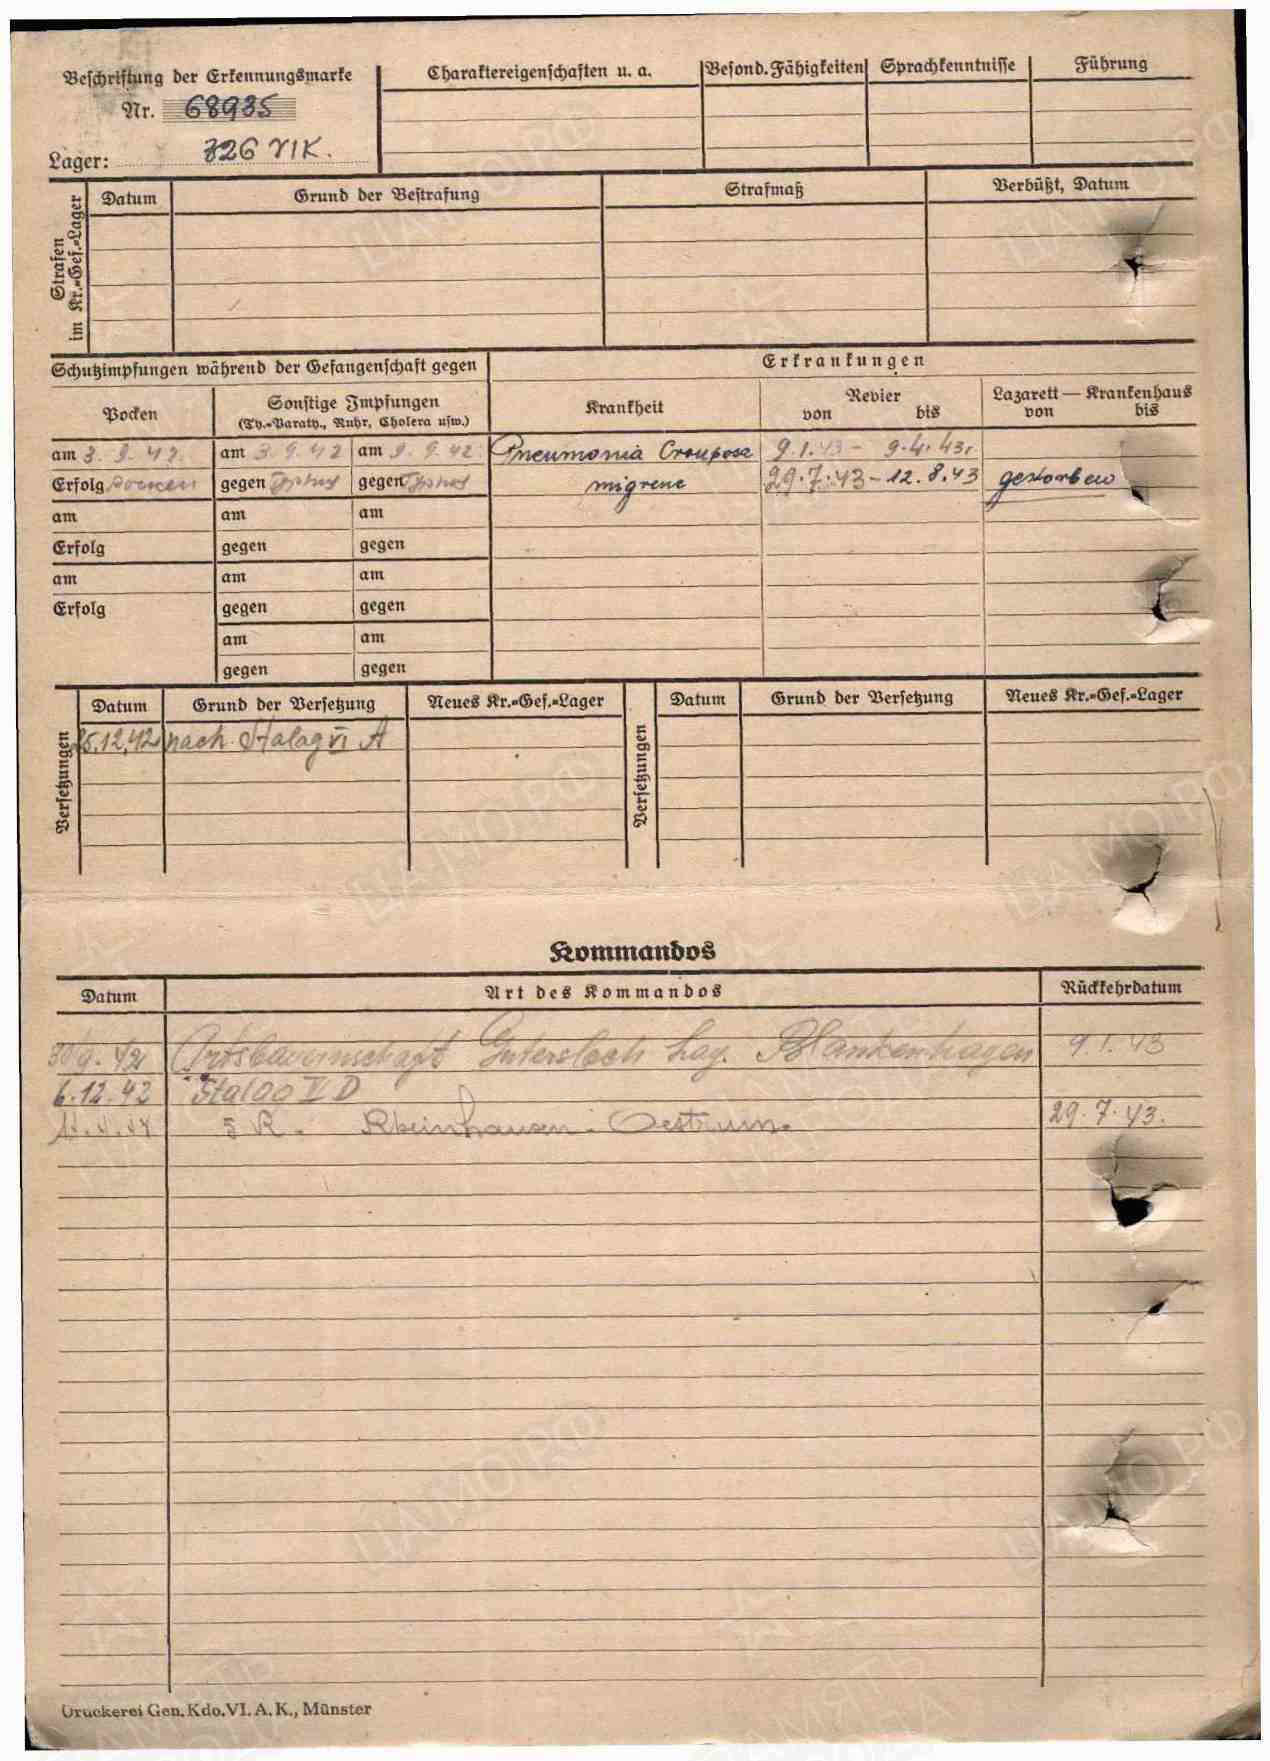 Beschriftung der Erkennungsmarke
Nr. 68935
Lager: 326 VI K.
Charaktereigenschaften u. a. Besond. Fähigkeiten Sprachkenntnisse Führung
Strafen im Kr.-Gef.-Lager
Datum Grund der Bestrafung Strafmaß Verbüßt, Datum
Schutzimpfungen während der Gefangenschaft gegen Erkrankungen
Pocken Sonstige Impfungen Krankheit Revier Lazarett — Krankenhaus
(Ty.-Paraty., Ruhr, Cholera usw.) von bis von bis
am 3. 9. 42. am 3. 9. 42 am 9. 9. 42. Pneumonia Crouposa 9. 1. 43 – 9. 4. 43.
Erfolg Pocken gegen Typhus gegen Typhus migrene 29. 7. 43 – 12. 8. 43 gestorben
am am am
Erfolg gegen gegen
am am am
Erfolg gegen gegen
am am
gegen gegen
Versetzungen
Datum Grund der Versetzung Neues Kr.-Gef.-Lager
25.12.42 nach Stalag VI A
Versetzungen
Datum Grund der Versetzung Neues Kr.-Gef.-Lager
Kommandos
Datum Art des Kommandos Rückkehrdatum
30/9. 42 Gütersloh Lag. Blankenhagen 9. 1. 43
6.12.42 Stalag VI D
5 R. Rheinhausen - Oestrum. 29. 7. 43.
Druckerei Gen. Kdo. VI. A. K., Münster
ЦАМО РФ